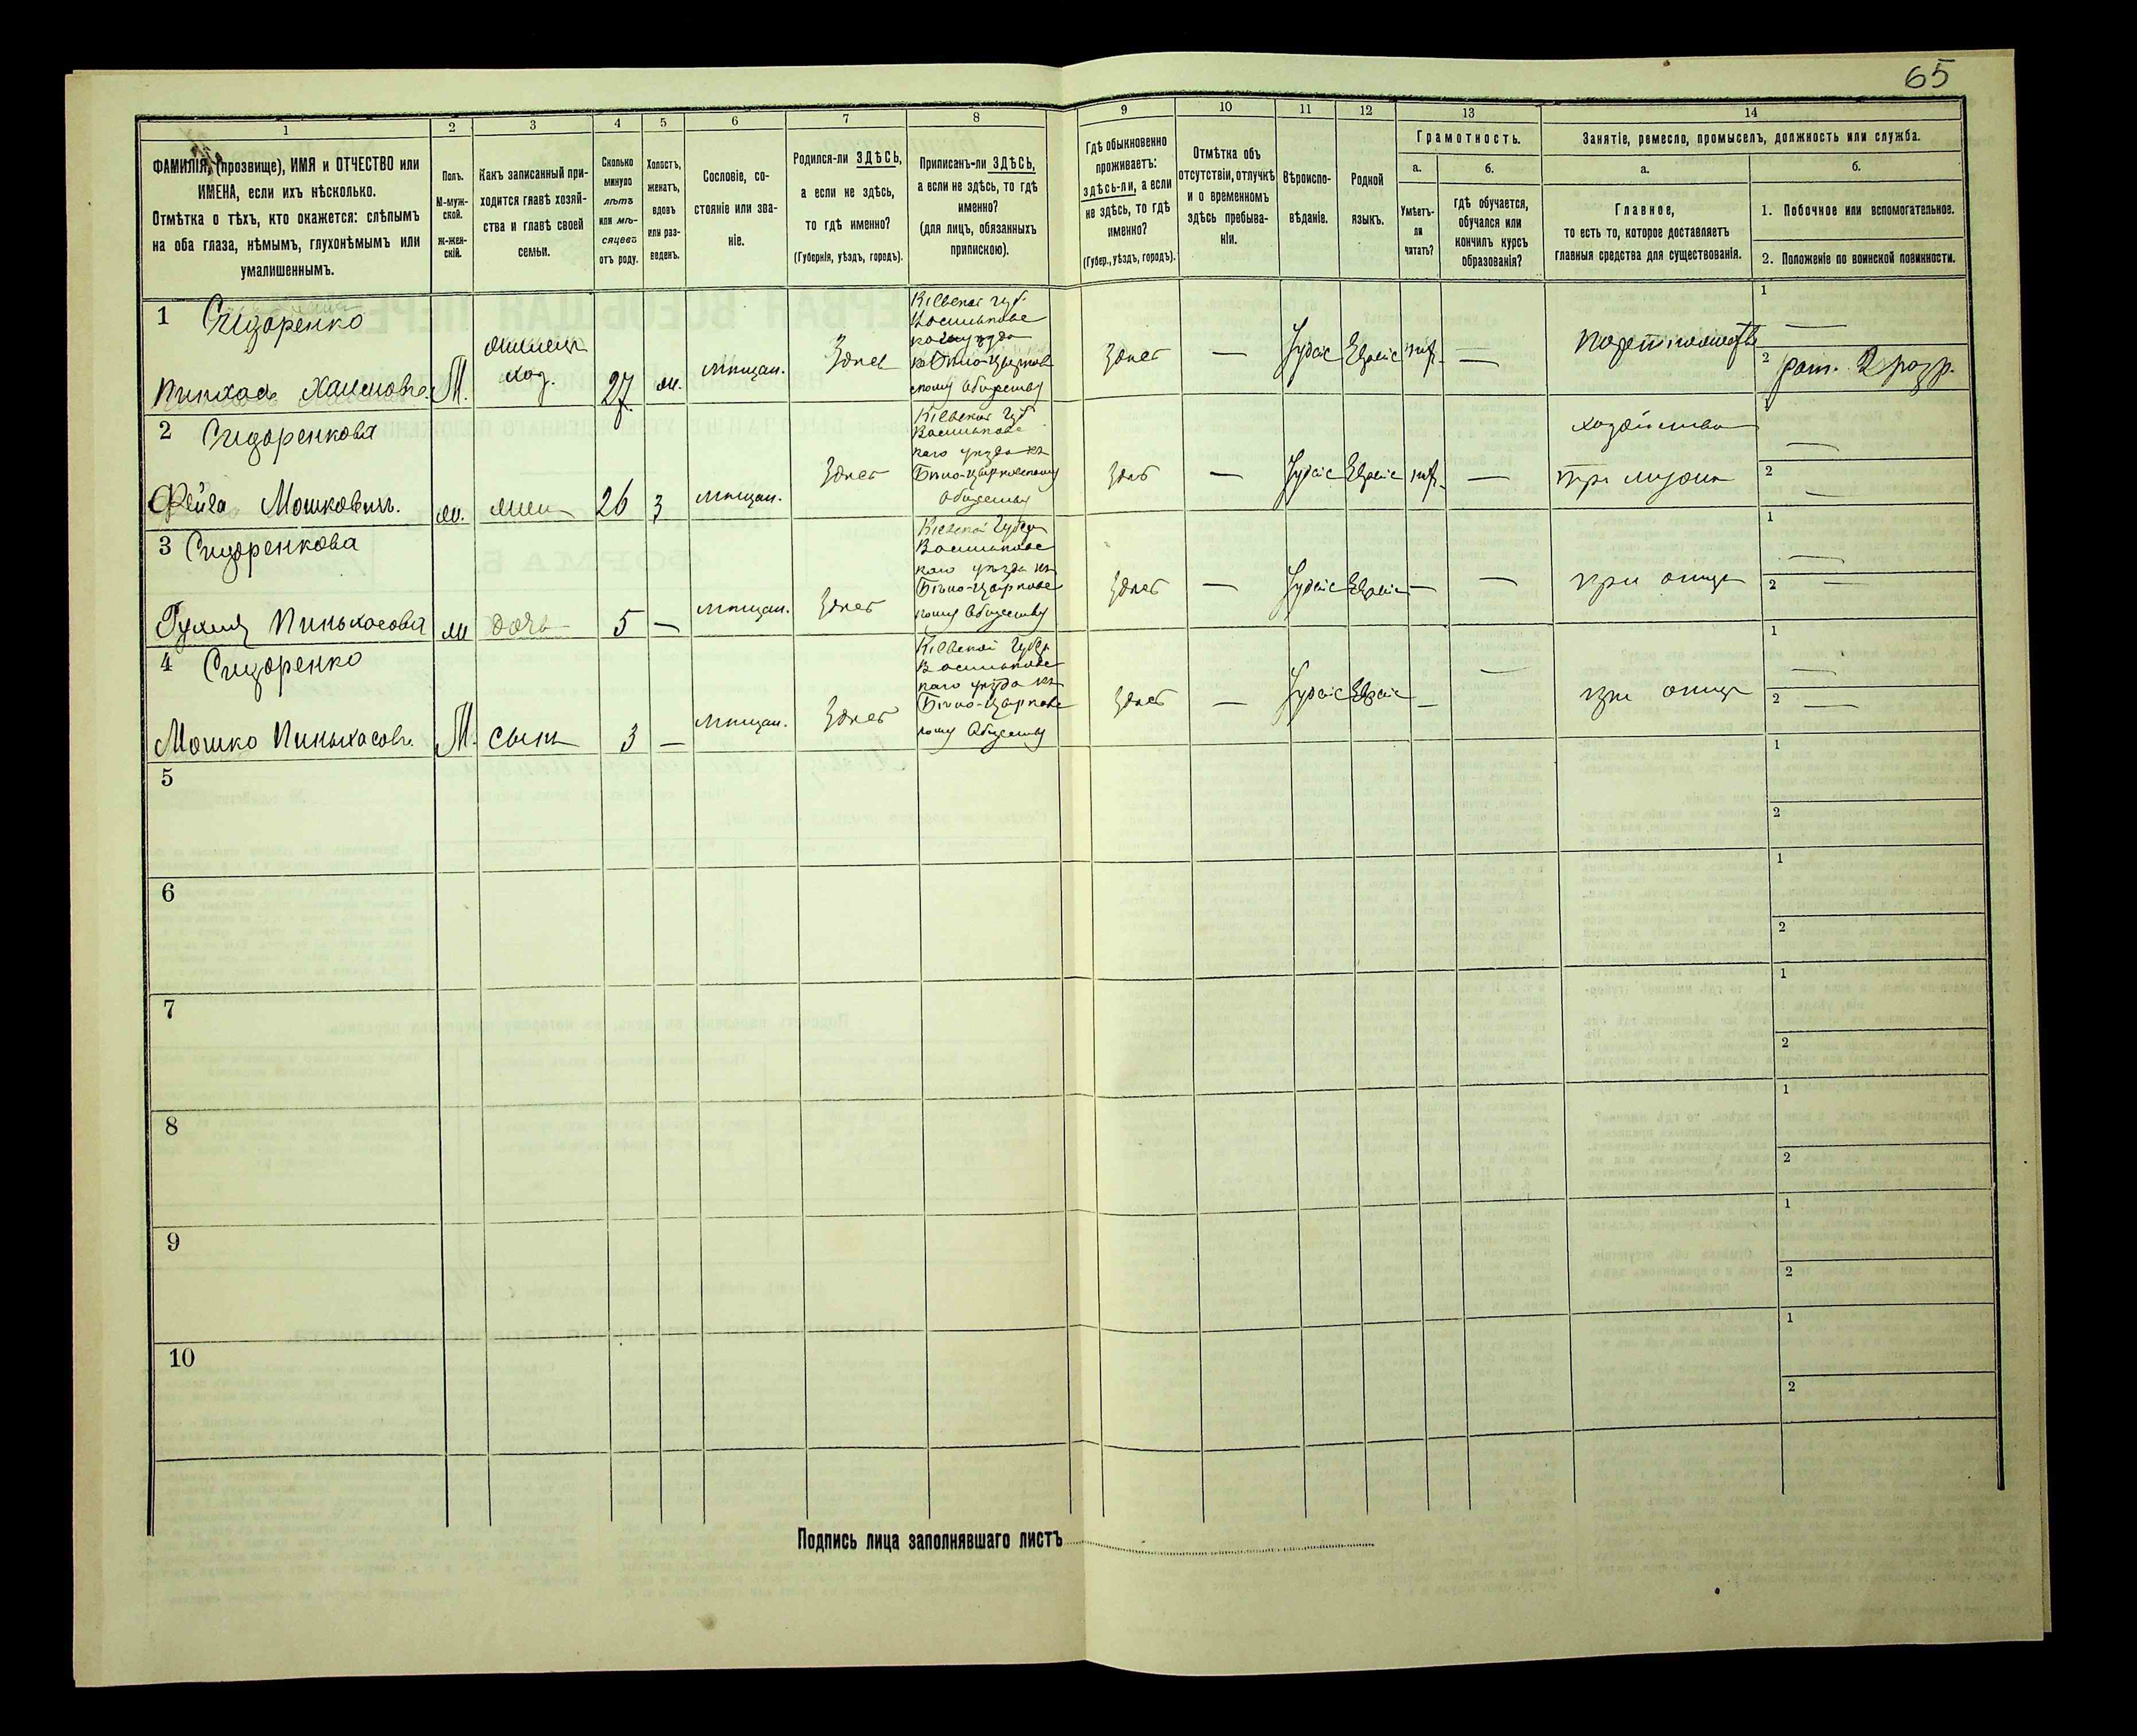 65
1
2
3
4
5
6
7
8
9
10
11
12
13
14
ФАМИЛІЯ, (прозвище), ИМЯ и ОТЧЕСТВО или
ИМЕНА, если ихъ нѣсколько.
Отмѣтка о тѣхъ, кто окажется: слѣпымъ
на оба глаза, нѣмымъ, глухонѣмымъ или
умалишеннымъ.
Полъ.
М-муж-
ской.
ж-жен-
скій.
Какъ записанный при-
ходится главѣ хозяй-
ства и главѣ своей
семьи.
Сколько
минуло
лѣтъ
или мѣ-
сяцевъ
отъ роду.
Холостъ,
женатъ,
вдовъ
или раз-
веденъ.
Сословіе, со-
стояніе или зва-
ніе.
Родился-ли ЗДѢСЬ,
а если не здѣсь,
то гдѣ именно?
(Губернія, уѣздъ, городъ).
Приписанъ-ли ЗДѢСЬ,
а если не здѣсь, то гдѣ
именно?
(для лицъ, обязанныхъ
припискою).
Гдѣ обыкновенно
проживаетъ:
здѣсь-ли, а если
не здѣсь, то гдѣ
именно?
(Губер., уѣздъ, городъ).
Отмѣтка объ
отсутствіи, отлучкѣ
и о временномъ
здѣсь пребыва-
ніи.
Вѣроиспо-
вѣданіе.
Родной
языкъ.
Грамотность.
а.
б.
Умѣетъ-
ли
читать?
гдѣ обучается,
обучался или
кончилъ курсъ
образованія?
Занятіе, ремесло, промыселъ, должность или служба.
а.
б.
Главное,
то есть то, которое доставляетъ
главныя средства для существованія.
1. Побочное или вспомогательное.
2. Положеніе по воинской повинности.
1 Сидоренко
Пинхасъ Хаимовъ. М.
хоз.
27
мѣщан.
Здѣсь
Кіевской губ.
Васильковс
обществу
Здѣсь
—
Іудейс
Еврейс
—
1
—
2
рат. 2 разр.
2 Сидоренкова
Фейга Мошковичъ.
26
з
мѣщан.
Здѣсь
Кіевской губ
Васильковс
каго уѣзда къ
Бѣло-Церковскому
обществу
—
Іудейс
Еврейс
—
хозяйства
при мужи
1
—
2
—
3 Сидоренкова
Пиньхасова
дочь
5
—
мѣщан.
Здѣсь
Кіевской губер
Васильковс
каго уѣзда къ
Бѣло-Церковс
кому обществу
Здѣсь
—
Іудейс
Еврейс
—
—
при отцѣ
1
—
2
—
4 Сидоренко
Мошко Пиньхасовъ.
М.
сынъ
3
—
мѣщан.
Здѣсь
Кіевской губер
Васильковс
каго уѣзда къ
Бѣло-Церковс
кому обществу
Здѣсь
—
Іудейс
Еврейс
—
—
при отцѣ
1
—
2
—
5
1
2
6
1
2
7
1
2
8
1
2
9
1
2
10
1
2
Подпись лица заполнявшаго листъ